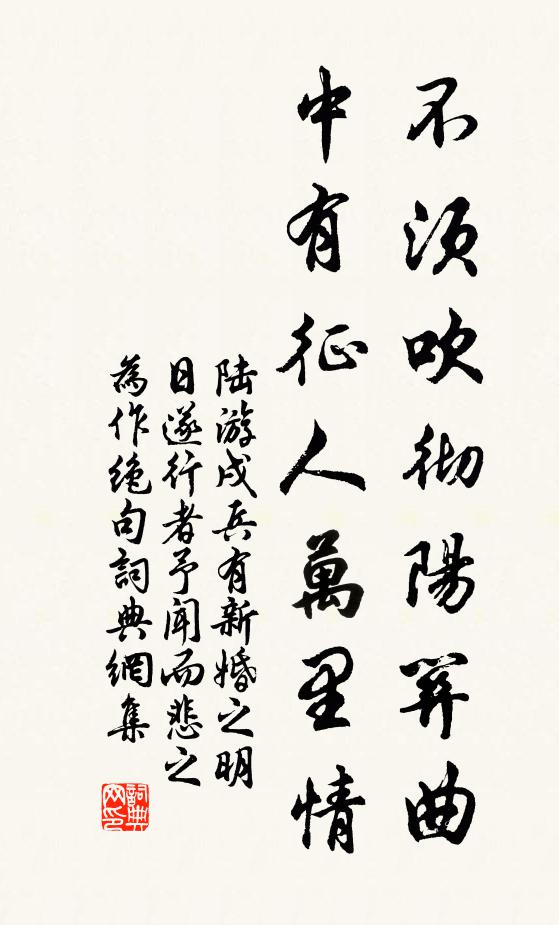 不須吹彻陽關曲
中有征人萬里情
陆游戍兵有新婚之明
日遂行者予聞而悲之
為作絶句詞典網集
詞典
网印